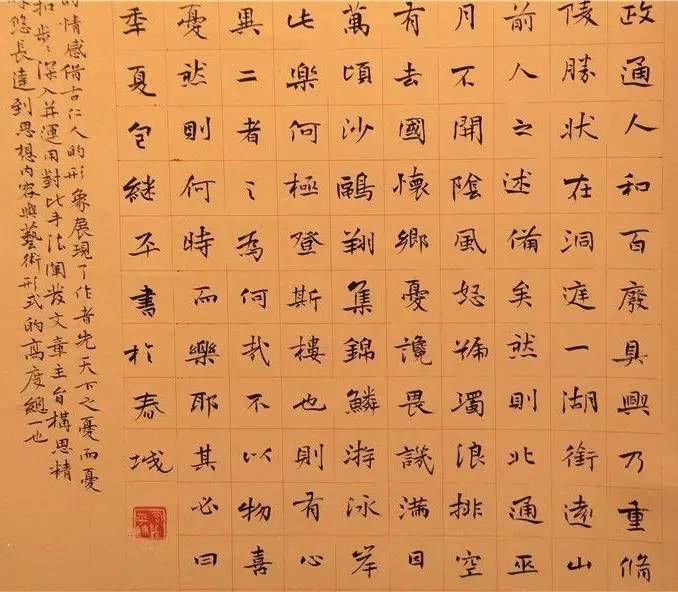 政通人和百廢具興乃重脩
陵勝狀在洞庭一湖銜遠山
前人之述備矣然則北通巫
月不開陰風怒號濁浪排空
有去國懷鄉憂讒畏譏滿目
萬頃沙鷗翔集錦鱗游泳岸
此樂何極登斯樓也則有心
異二者之為何哉不以物喜
憂然則何時而樂耶其必曰
季夏包継平書於春城
的情感借古仁人的形象展現了作者先天下之憂而憂
和步步深入并運用對比手法闡發文章主旨構思精
悠長達到思想内容與藝術形式的高度總一也